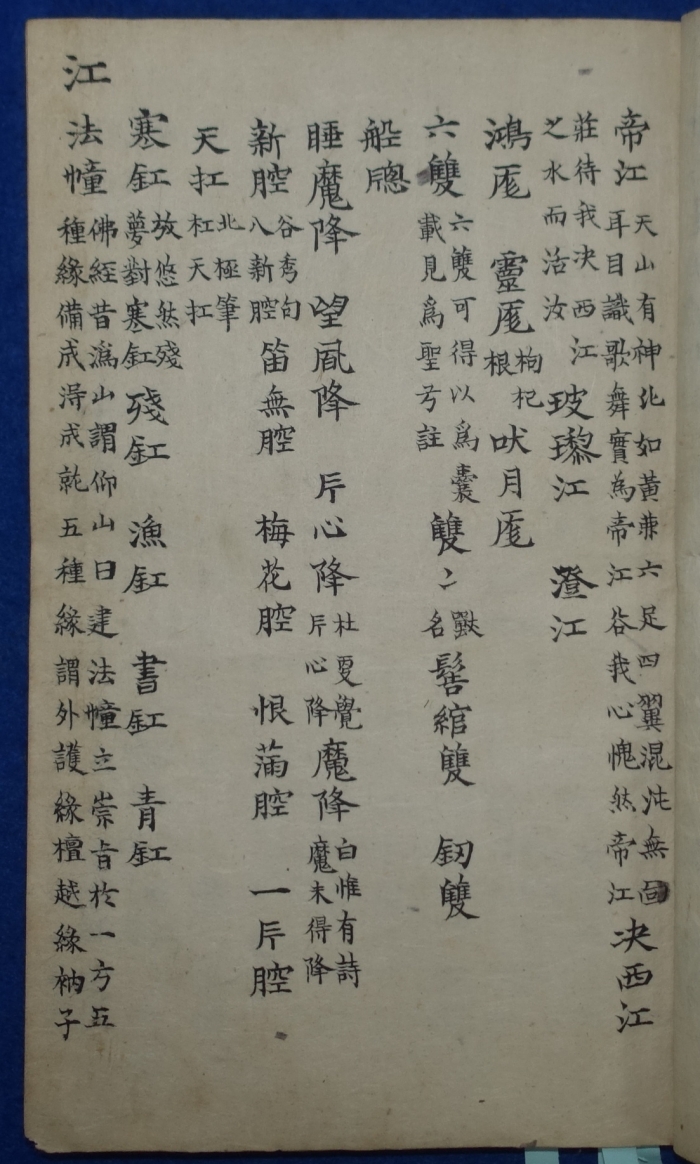 帝江 天山有神北如黃兼六足四翼混沌無面耳目識歌舞實為帝江谷我心愧然帝江 决西江
莊待我决西江之水而活汝 玻瓈江 澄江
鴻厖 靈厖 枸杞根 吠月厖
六雙 六雙可得以為囊載見為聖兮註 雙〻 獸名 髻綰雙 釖雙
船牕
睡魔降 望風降 片心降 杜夏覺片心降 魔降 白惟有詩魔未得降
新腔 谷秀句八新腔 笛無腔 梅花腔 恨滿腔 一片腔
天扛 北極筆杠天扛
寒釭 放悠然殘夢對寒釭 殘釭 漁釭 書釭 青釭
法幢 佛經昔溈山謂仰山曰建法幢立崇旨於一方五種緣備成淂成就五種緣謂外護緣檀越緣衲子
江